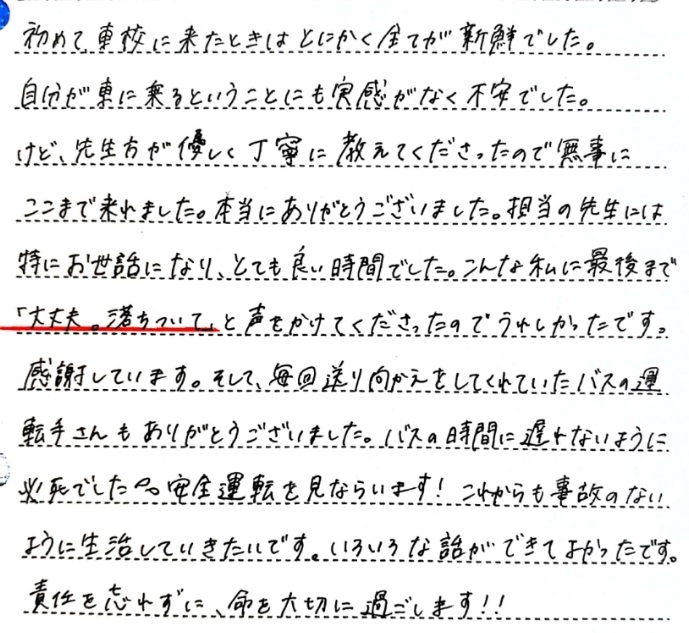 初めて車校に来たときはとにかく全てが新鮮でした。
自分が車に乗るということにも実感がなく不安でした。
けど、先生方が優しく丁寧に教えてくださったので無事に
ここまで来れました。本当にありがとうございました。担当の先生には
特にお世話になり、とても良い時間でした。こんな私に最後まで
「大丈夫。落ちついて」と声をかけてくださったのでうれしかったです。
感謝しています。そして、毎回送り向かえをしてくれていたバスの運
転手さんもありがとうございました。バスの時間に遅れないように
必死でした^^安全運転を見ならいます!これからも事故のない
ように生活していきたいです。いろいろな話ができてよかったです。
責任を忘れずに、命を大切に過ごします!!